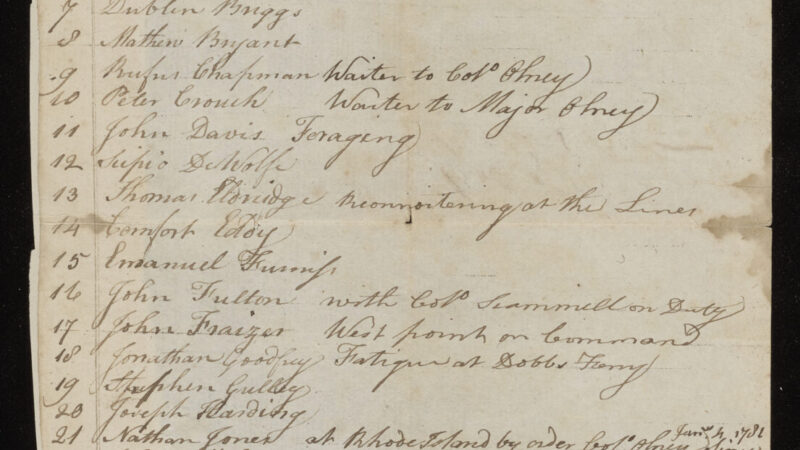 7 Dublin Briggs
8 Mathew Bryant
9 Rufus Chapman Waiter to Colo Olney
10 Peter Crouch Waiter to Major Olney
11 John Davis Forageng
12 Scipio DeWolfe
13 Thomas Eldridge Reconnoitering at the Lines
14 Comfort Eddy
15 Emanuel Furniss
16 John Fulton with Colo Scammell on Duty
17 John Fraizer West point on Command
18 Jonathan Goodfrey Fatigue at Dobbs Ferry
19 Stephen Gulley
20 Joseph Harding
21 Nathan Jones at Rhode Island by order Colo Olney Jany 4 1781